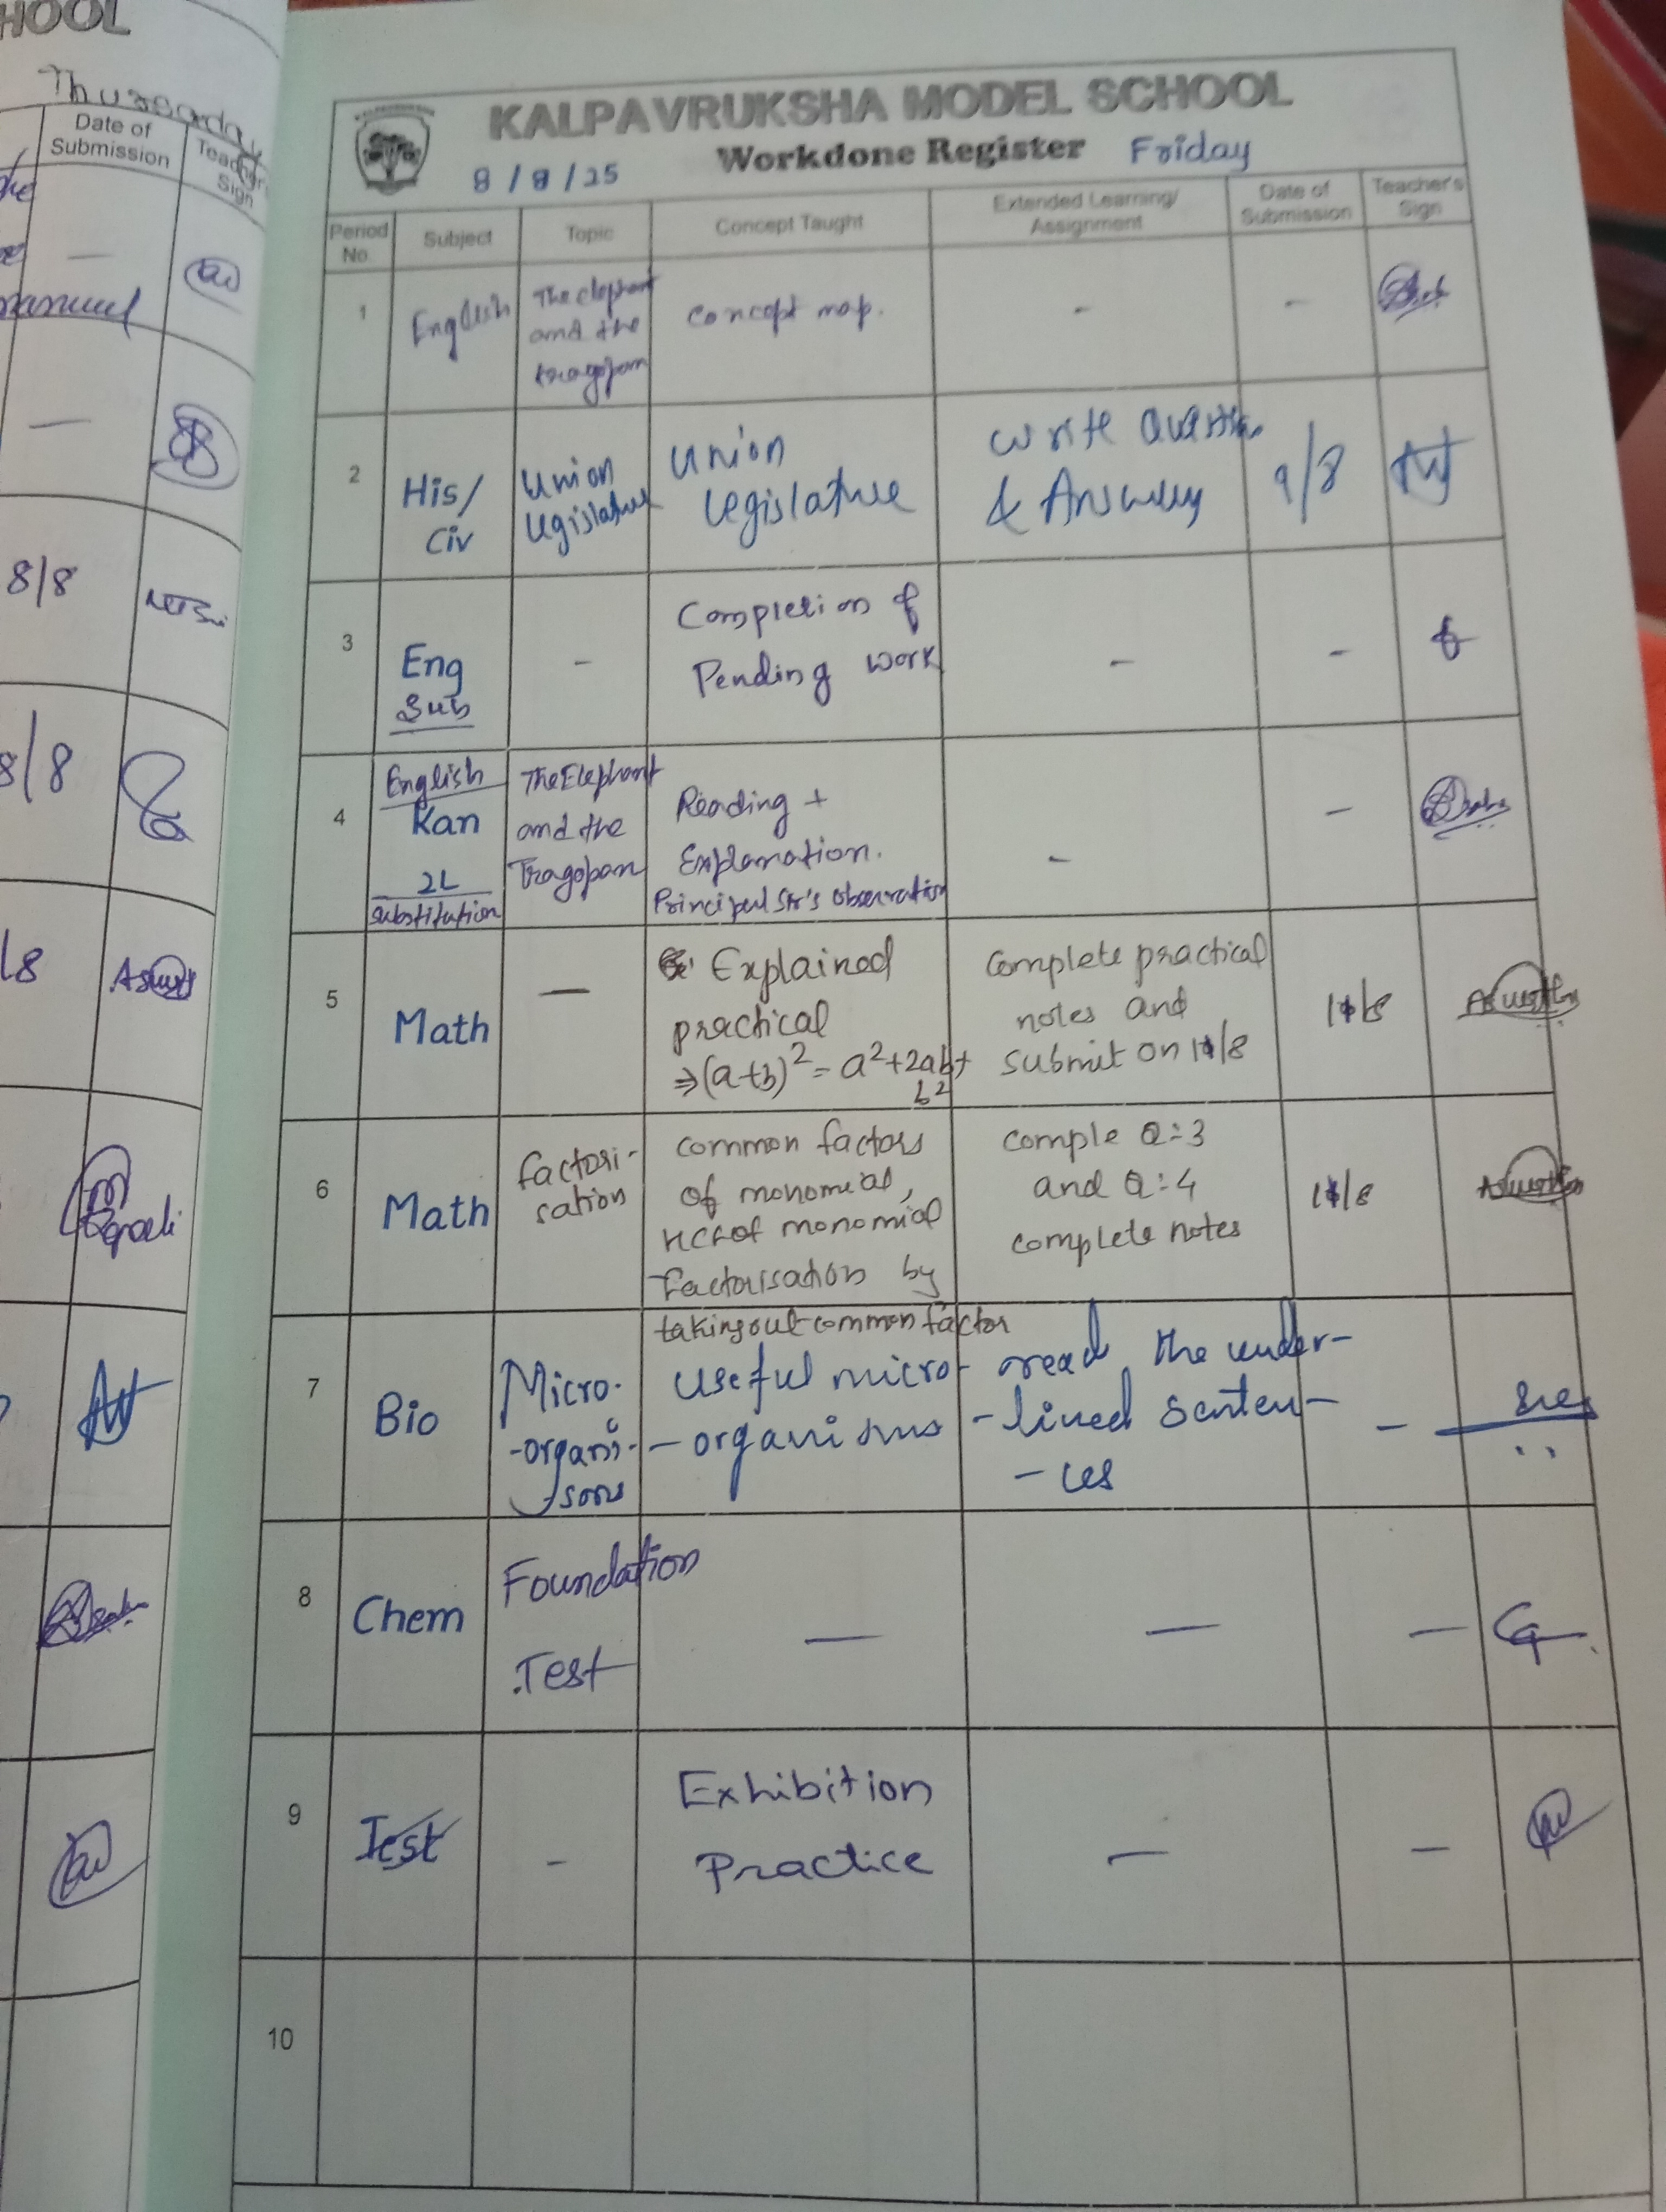 HOOL
Thursday
Date of
Submission
Teacher's
Sign
8/8
8/8
KALPAVRUKSHA MODEL SCHOOL
8/8/25 Workdone Register Friday
Period
No
Subject
Topic
Concept Taught
Extended Learning/
Assignment
Date of
Submission
Teacher's
Sign
1
English
The elephant
and the
tragopan
Concept map.
-
-
2
His/
Civ
Union
legislature
Union
legislature
Write Question
& Answers
9/8
3
Eng
Sub
-
Completion of
Pending work
-
-
4
English
Kan
2L
substitution
The Elephant
and the
Tragopan
Reading +
Explanation.
Principal Sir's Observation
-
-
5
Math
—
Explained
practical
⇒(a+b)²= a²+2ab+
b²
Complete practical
notes and
submit on 11/8
11/8
6
Math
factori-
sation
common factors
of monomial,
HCF of monomial
Factorisation by
taking out common factor
comple Q:3
and Q:4
complete notes
11/8
7
Bio
Micro-
-organi-
-sms
Useful micro-
-organisms
read the under-
-lined senten-
-ces
-
8
Chem
Foundation
Test
—
—
—
9
Test
-
Exhibition
Practice
—
—
10